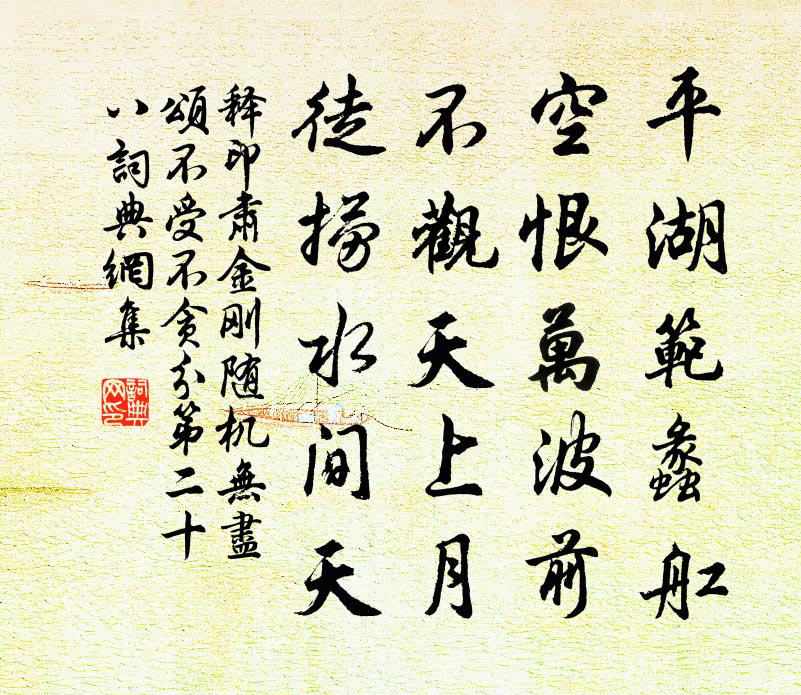 平湖範蠡舡
空恨萬波前
不觀天上月
徒撈水間天
释印肃金刚随机無盡
頌不受不貪分第二十
八詞典網集
詞典
网印